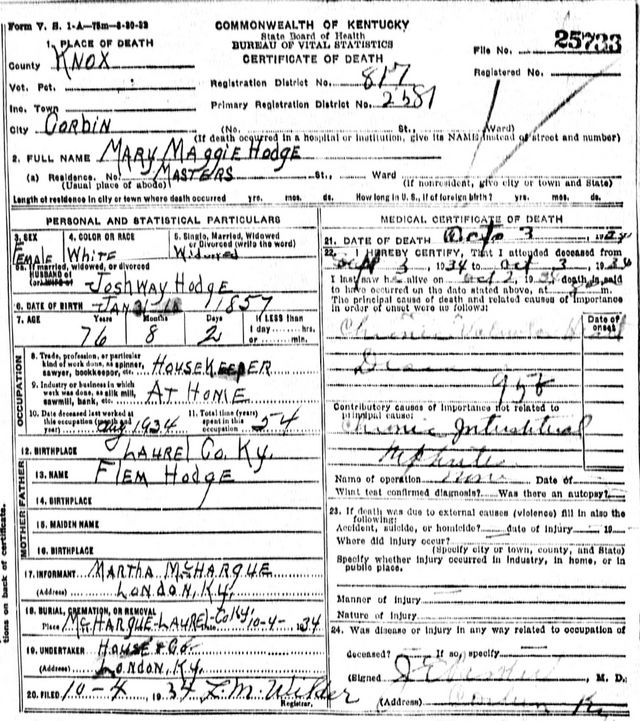 Form V. S. 1-A—75m—8-30-32
COMMONWEALTH OF KENTUCKY
State Board of Health
BUREAU OF VITAL STATISTICS
CERTIFICATE OF DEATH
File No. 25733
Registered No.
1. PLACE OF DEATH
County KNOX
Vot. Pct.
Inc. Town
City CORBIN
Registration District No. 817
Primary Registration District No.
(No. St., Ward)
(If death occurred in a hospital or institution, give its NAME instead of street and number)
2. FULL NAME MARY MAGGIE HODGE
(a) Residence. No. MASTERS St., Ward
(Usual place of abode) (If nonresident, give city or town and State)
Length of residence in city or town where death occurred yrs. mos. ds. How long in U. S., if of foreign birth? yrs. mos. ds.
PERSONAL AND STATISTICAL PARTICULARS
3. SEX FEMALE
4. COLOR OR RACE White
5. Single, Married, Widowed or Divorced (write the word) Widowed
5a. If married, widowed, or divorced
HUSBAND of JOSHWAY HODGE
6. DATE OF BIRTH JAN 1857
7. AGE Years Months Days If LESS than
76 8 2 1 day hrs.
or min.
OCCUPATION
8. Trade, profession, or particular
kind of work done, as spinner, HOUSEKEEPER
sawyer, bookkeeper, etc.
9. Industry or business in which
work was done, as silk mill, AT HOME
sawmill, bank, etc.
10. Date deceased last worked at
this occupation (month and year) 1934
11. Total time (years)
spent in this
occupation 54
12. BIRTHPLACE LAUREL CO. KY.
FATHER
13. NAME FLEM HODGE
14. BIRTHPLACE
MOTHER
15. MAIDEN NAME
16. BIRTHPLACE
17. INFORMANT MARTHA MCHARGUE
(Address) LONDON, KY.
18. BURIAL, CREMATION, OR REMOVAL
Place MCHARGUE-LAUREL-CO KY, 10-4-1934
19. UNDERTAKER HOUSE & CO.
(Address) LONDON, KY.
20. FILED 10-4 1934
Registrar.
tions on back of certificate.
MEDICAL CERTIFICATE OF DEATH
21. DATE OF DEATH Oct 3
22. I HEREBY CERTIFY, That I attended deceased from
Sept 3, 1934 to Oct 3, 1934
I last saw h alive on Oct 2, 19 death is said
to have occurred on the date stated above, at m.
The principal cause of death and related causes of importance
in order of onset were as follows:
Date of onset
Chronic Valvular
Contributory causes of importance not related to
principal cause:
Chronic Interstitial
Nephritis
Name of operation None Date of
What test confirmed diagnosis? Was there an autopsy?
23. If death was due to external causes (violence) fill in also the
following:
Accident, suicide, or homicide? date of injury 19
Where did injury occur?
(Specify city or town, county, and State)
Specify whether injury occurred in industry, in home, or in
public place.
Manner of injury
Nature of injury
24. Was disease or injury in any way related to occupation of
deceased? If so, specify
(Signed) M. D.
(Address) Corbin Ky